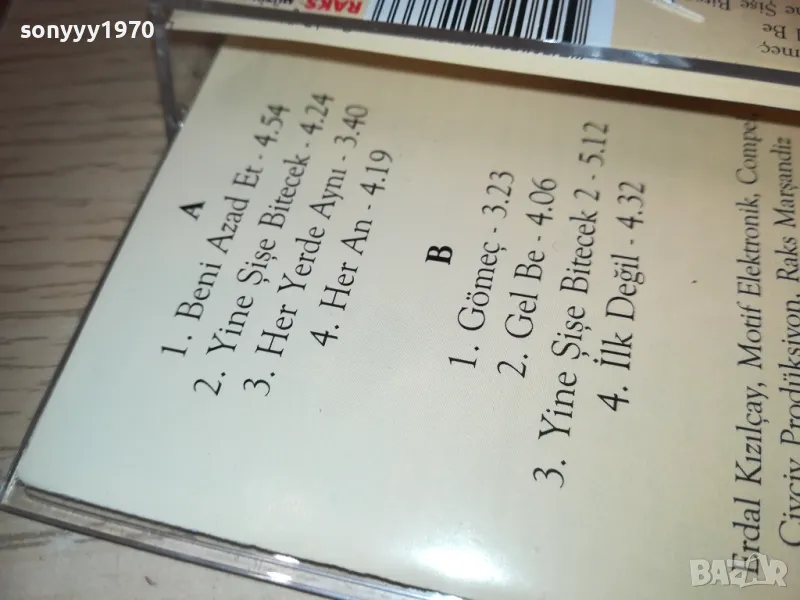 sonyyy1970
RAKS
A
1. Beni Azad Et - 4.54
2. Yine Şişe Bitecek - 4.24
3. Her Yerde Aynı - 3.40
4. Her An - 4.19
B
1. Gömeç - 3.23
2. Gel Be - 4.06
3. Yine Şişe Bitecek 2 - 5.12
4. İlk Değil - 4.32
Erdal Kızılçay, Motif Elektronik,
Prodüksiyon, Raks Marşandiz
BAZAR
bg